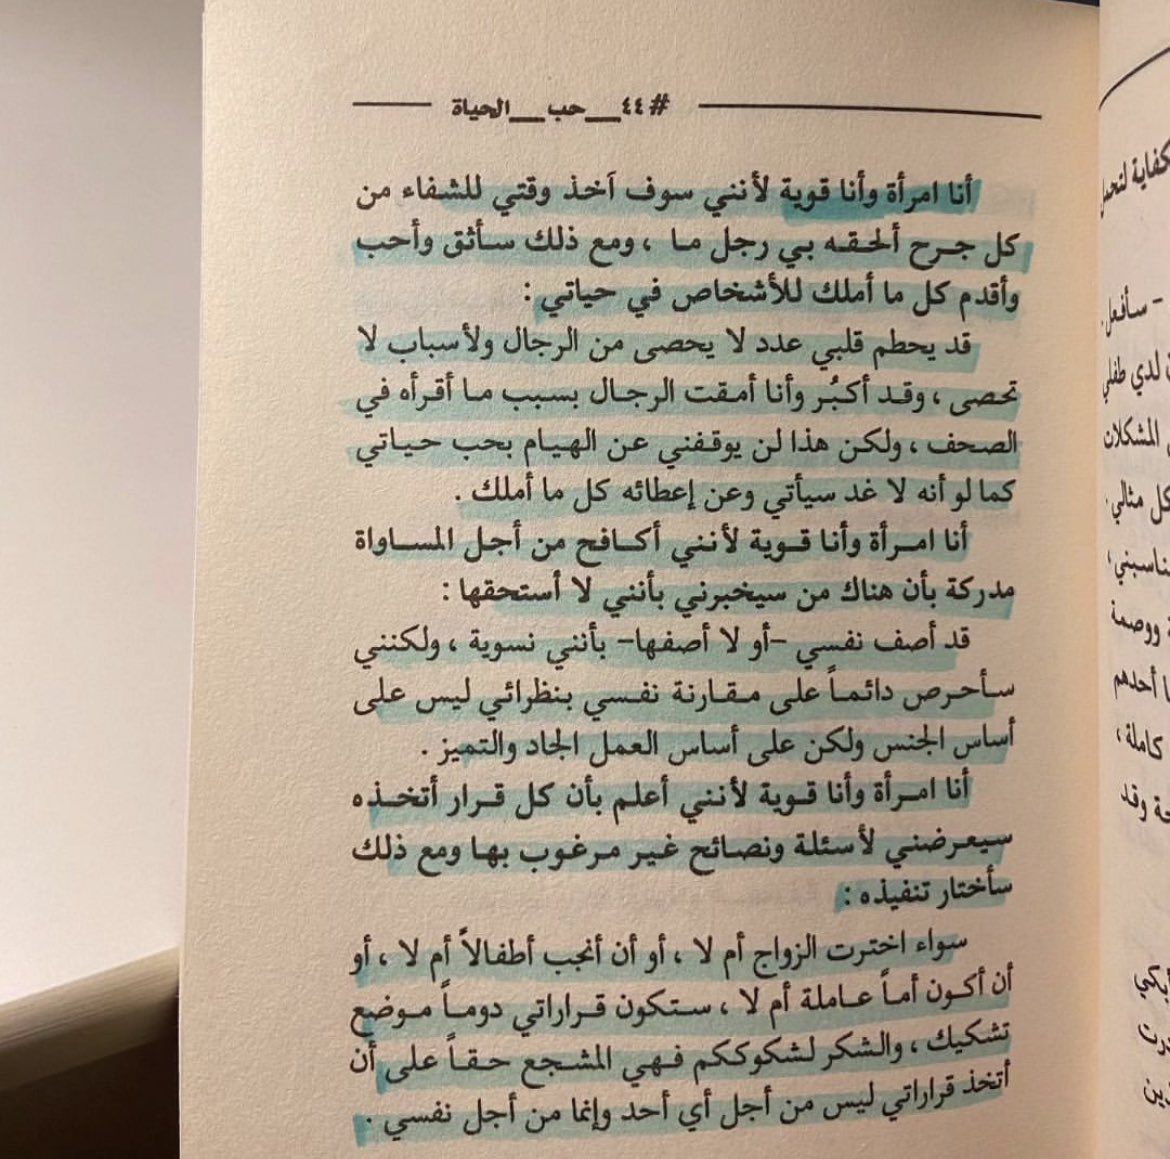 #٤٤__حب__الحياة
أنا امرأة وأنا قوية لأنني سوف آخذ وقتي للشفاء من
كل جرح ألحقه بي رجل ما ، ومع ذلك سأثق وأحب
وأقدم كل ما أملك للأشخاص في حياتي :
قد يحطم قلبي عدد لا يحصى من الرجال ولأسباب لا
تحصى ، وقد أكبُر وأنا أمقت الرجال بسبب ما أقرأه في
الصحف ، ولكن هذا لن يوقفني عن الهيام بحب حياتي
كما لو أنه لا غد سيأتي وعن إعطائه كل ما أملك .
أنا امرأة وأنا قوية لأنني أكافح من أجل المساواة
مدركة بأن هناك من سيخبرني بأنني لا أستحقها :
قد أصف نفسي –أو لا أصفها– بأنني نسوية ، ولكنني
سأحرص دائماً على مقارنة نفسي بنظرائي ليس على
أساس الجنس ولكن على أساس العمل الجاد والتميز .
أنا امرأة وأنا قوية لأنني أعلم بأن كل قرار أتخذه
سيعرضني لأسئلة ونصائح غير مرغوب بها ومع ذلك
سأختار تنفيذه :
سواء اخترت الزواج أم لا ، أو أن أنجب أطفالاً أم لا ، أو
أن أكون أماً عاملة أم لا ، ستكون قراراتي دوماً موضع
تشكيك ، والشكر لشكوككم فهي المشجع حقاً على أن
أتخذ قراراتي ليس من أجل أي أحد وإنما من أجل نفسي .
كفاية لتحمل
– سأفعل
لدي طفلي
المشكلات
كل مثالي
يناسبني ،
ووصمة
أحدهم
كاملة ،
وقد